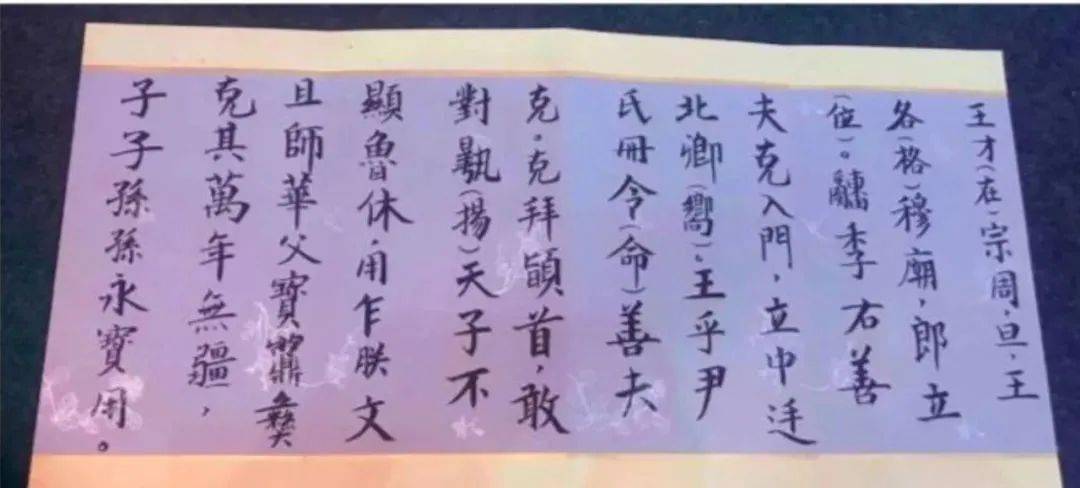 王才(在)宗周,旦,王
各(格)穆廟,郎立
(位)。季右善
夫克入門,立中廷
北卿(嚮)。王乎尹
氏冊令(命)善夫
克。克拜首,敢
對(揚)天子不
顯魯休,用乍朕文
且師華父寶彝
克其萬年無疆,
子子孫孫永寶用。